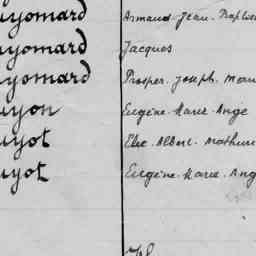 uyomard Armand. Jean. Baptis
uyomard Jacques
uyomard Prosper. Joseph. Marie
uyon Eugène. Marie. Ange
uyot Elie. Albert. Mathuri
uyot Eugène. Marie. Ang